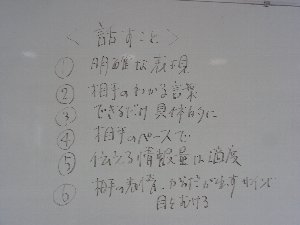 ＜話すこと＞
① 明確な表現
② 相手のわかる言葉
③ できるだけ具体的に
④ 相手のペースで
⑤ 伝える情報量は適度
⑥ 相手の表情、からだが出すサインに
目を向ける